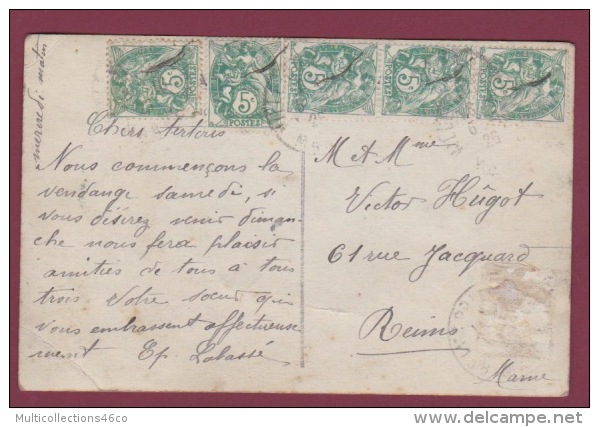 mercredi matin
5c
POSTES
Chers
Nous commençons la
vendange samedi, si
vous désirez venir diman-
che nous fera plaisir
amitiés de tous à tous
trois Votre sœur qui
vous embrassent affectueuse
ment Ep. Labassé
M et Mme
Victor Hûgot
61 rue Jacquard
Reims
Marne
Multicollections46co
delcampe.net